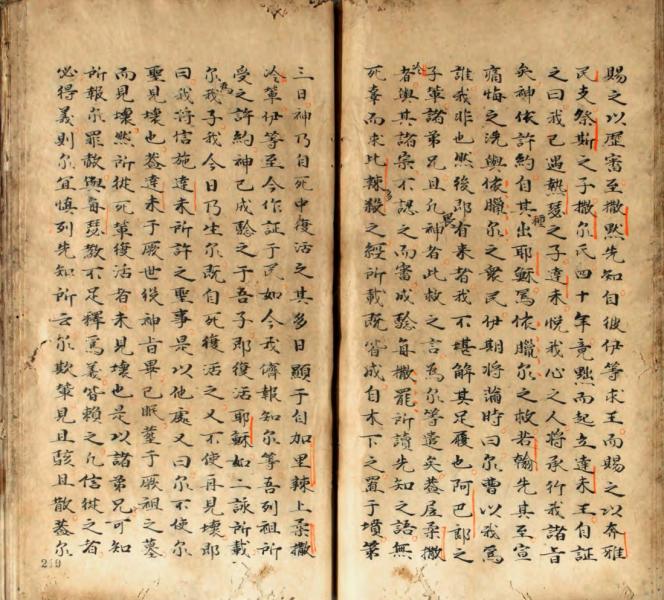 賜之以歷審至撒黙先知自彼伊等求王而賜之以奔雅
民支祭斯之子撒尔氏四十年竟黜而起立達未王自証
之曰我已遇熱瑟之子達未悦我心之人将承行我諸旨
矣神依許約自其種出耶穌為依臘尔之救者翰先其至宣
痛悔之洗與依臘尔之衆民伊期将滿時曰尔曹以我為
誰我非也然後即有来者我不堪解其足履也阿巴郎之
子輩諸弟兄且凡畏神者此救之言為尔等遣矣盖居柔撒
冷者與其諸宗不認之而審成驗每撒罷所讀先知之語無
死辜而求比辣多殺之經所載既皆成自木下之置于墳第
三日神乃自死中復活之其多日顕于自加里辣上柔撒
冷輩伊等至今作証于民如今我儕報知尔等吾列祖所
受之許約神已成驗之于吾子即復活耶穌如二詠所載
尔為我子我今日乃生尔既自死復活之又不使再見壊即
曰我将信施達未所許之聖事是以他處又曰尔不使尔
聖見壊也盖達未于厥世従神旨畢已眠塟于厥祖之墓
而見壊然所従死輩復活者未見壊也是以諸弟兄可知
所報尔罪赦與每瑟教不足釋為義皆賴之凡信従之者
必得義則尔宜慎列先知所云尔欺輩見且駭且散盖尔
219